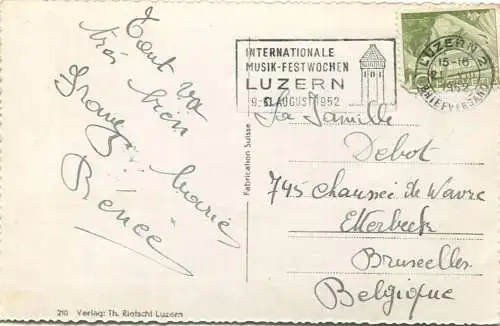 Tout va
très bien
Marie
Renée
Fabrication Suisse
210 Verlag: Th. Rietschi Luzern
INTERNATIONALE
MUSIK-FESTWOCHEN
LUZERN
9.-31 AUGUST 1952
LUZERN 2
15-16
1952
BRIEFVERSAND
La famille
Debot
745 Chaussée de Wavre
Etterbeck
Bruxelles
Belgique